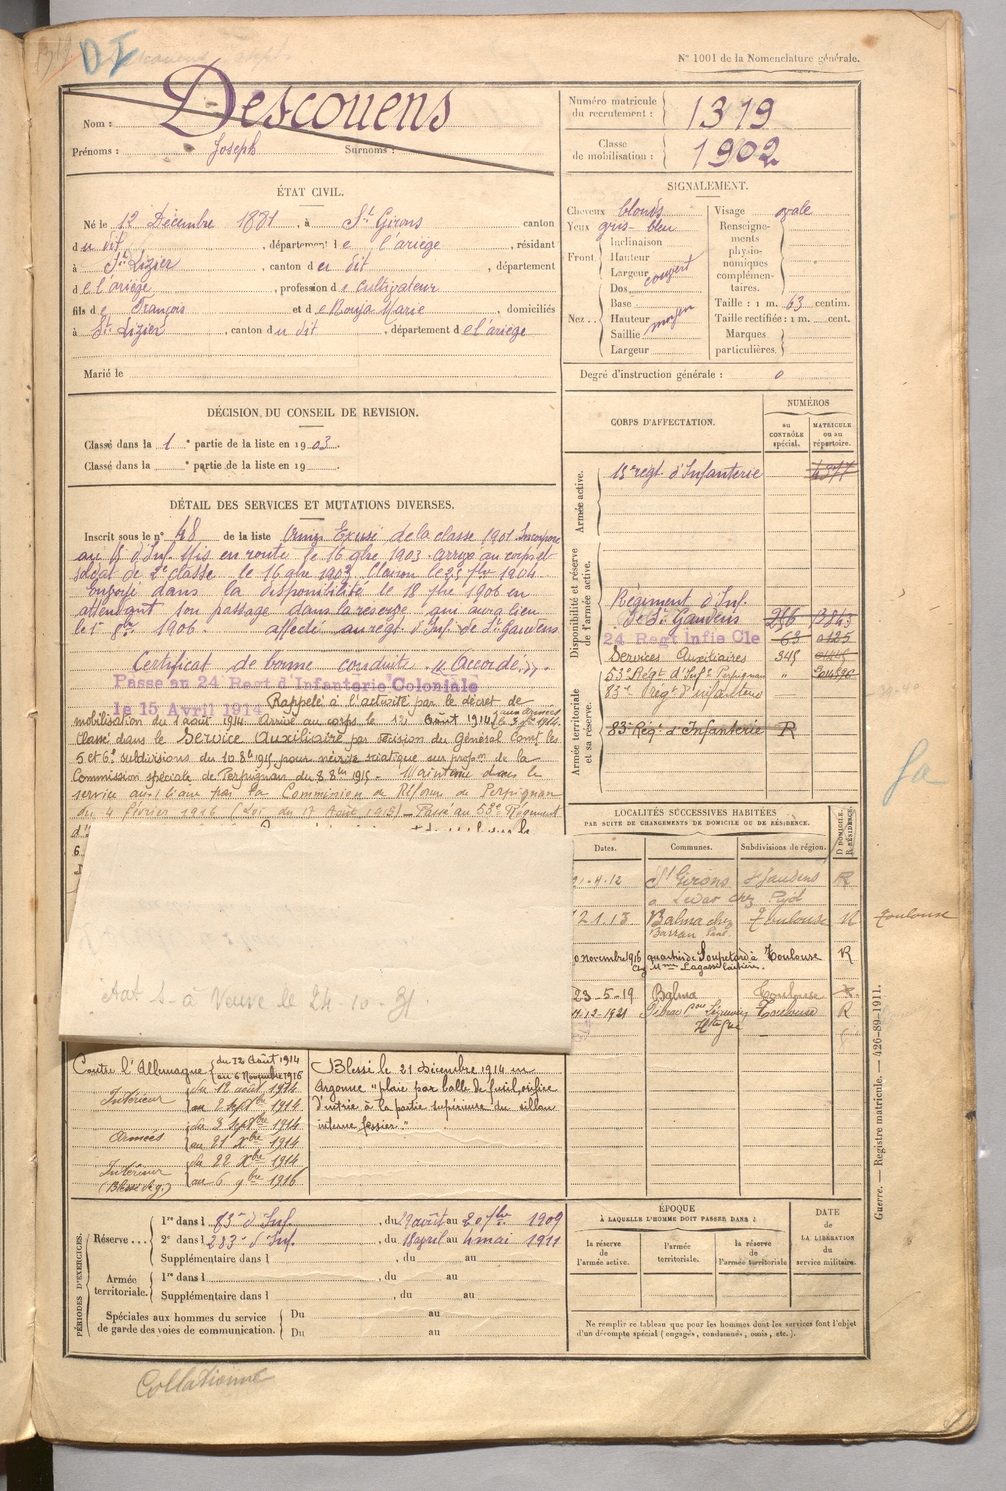 N° 1001 de la Nomenclature générale.
DI
Nom : Descouens
Prénoms : Joseph Surnoms :
Numéro matricule du recrutement : 1319
Classe de mobilisation : 1902
ÉTAT CIVIL.
Né le 12 Décembre 1881, à St Girons canton
du dit, département de l'ariège, résidant
à St Lizier, canton du dit, département
de l'ariège, profession de cultivateur
fils de François et de Rouja Marie, domiciliés
à St Lizier, canton du dit, département de l'ariège
Marié le
SIGNALEMENT.
Cheveux blonds
Yeux gris-bleu
Front
Inclinaison
Hauteur
Largeur couvert
Nez..
Dos
Base
Hauteur moyen
Saillie
Largeur
Visage ovale
Renseignements physionomiques complémentaires.
Taille : 1 m. 63 centim.
Taille rectifiée : 1 m. cent.
Marques particulières.
Degré d'instruction générale : 0
DÉCISION DU CONSEIL DE REVISION.
Classé dans la 1e partie de la liste en 1903.
Classé dans la e partie de la liste en 19 .
DÉTAIL DES SERVICES ET MUTATIONS DIVERSES.
Inscrit sous le n° 48 de la liste Omis Excusé de la classe 1901 Incorporé
au 15 d'Inf. Mis en route le 16 9bre 1903. Arrivé au corps et
soldat de 2e classe le 16 9bre 1903. Clairon le 25 7bre 1904.
Envoyé dans la disponibilité le 18 7bre 1906 en
attendant son passage dans la réserve qui aura lieu
le 1er 8bre 1906. affecté au régt d'Inf de St Gaudens
Certificat de bonne conduite "Accordé".
Passé au 24 Regt d'Infanterie Coloniale
le 15 Avril 1914
Rappelé à l'activité par le décret de
mobilisation du 1 août 1914. Arrivé au corps le 12 Août 1914, aux armées le 3 7bre 1914.
Classé dans le Service Auxiliaire par décision du Général Comt les
5 et 6e subdivisions du 10 8bre 1915 pour névrite sciatique sur propon de la
Commission spéciale de Perpignan du 8 8bre 1915. Maintenu dans le
service auxiliaire par la Commission de Réforme de Perpignan
du 4 février 1916 (Loi du 17 Août 1915) - Passé au 53e Régiment
CORPS D'AFFECTATION.
NUMÉROS
au CONTRÔLE spécial.
MATRICULE ou au répertoire.
Armée active.
15e regt d'Infanterie
Disponibilité et réserve de l'armée active.
Régiment d'Inf.
de St Gaudens
24 Regt Infie Cle
Services Auxiliaires 345
53e Régt d'Infie Perpignan "
Armée territoriale et sa réserve.
83e Régt d'infanterie
83e Régt d'Infanterie R
LOCALITÉS SUCCESSIVES HABITÉES
PAR SUITE DE CHANGEMENTS DE DOMICILE OU DE RÉSIDENCE.
Dates.
Communes.
Subdivisions de région.
D DOMICILE. R RÉSIDENCE.
21-4-12 St Girons St Gaudens R
à Ledar chez Pujol
2.1.13 Balma chez Toulouse
Barran Paul
Toulouse
novembre 1916 quartier de Soupetard à Toulouse R
Chez Mme Lagasse laitière.
23-5-19 Balma Toulouse
Toulouse R
Hte Gne
Acte N à Veuve le 24-10-31.
Contre l'Allemagne du 12 Août 1914 au 6 Novembre 1916
Intérieur du 12 août 1914 au 2 septbre 1914
Armées du 3 septbre 1914 au 21 Xbre 1914
Intérieur (Blessé de g.) du 22 Xbre 1914 au 6 9bre 1916
Blessé le 21 Décembre 1914 en
Argonne "plaie par balle de fusil, orifice
d'entrée à la partie supérieure du sillon
interne fessier"
PÉRIODES D'EXERCICES.
Réserve...
1re dans l 83e d'Inf., du 29 août au 20 7bre 1909
2e dans l 283e d'Inf., du 18 avril au 4 mai 1911
Supplémentaire dans l , du au
Armée territoriale.
1re dans l , du au
Supplémentaire dans l , du au
Spéciales aux hommes du service de garde des voies de communication.
Du au
Du au
ÉPOQUE
À LAQUELLE L'HOMME DOIT PASSER DANS :
la réserve de l'armée active.
l'armée territoriale.
la réserve de l'armée territoriale
DATE de LA LIBÉRATION du service militaire.
Ne remplir ce tableau que pour les hommes dont les services font l'objet
d'un décompte spécial (engagés, condamnés, omis, etc.).
Guerre. — Registre matricule. — 426-89-1911.
Collationné